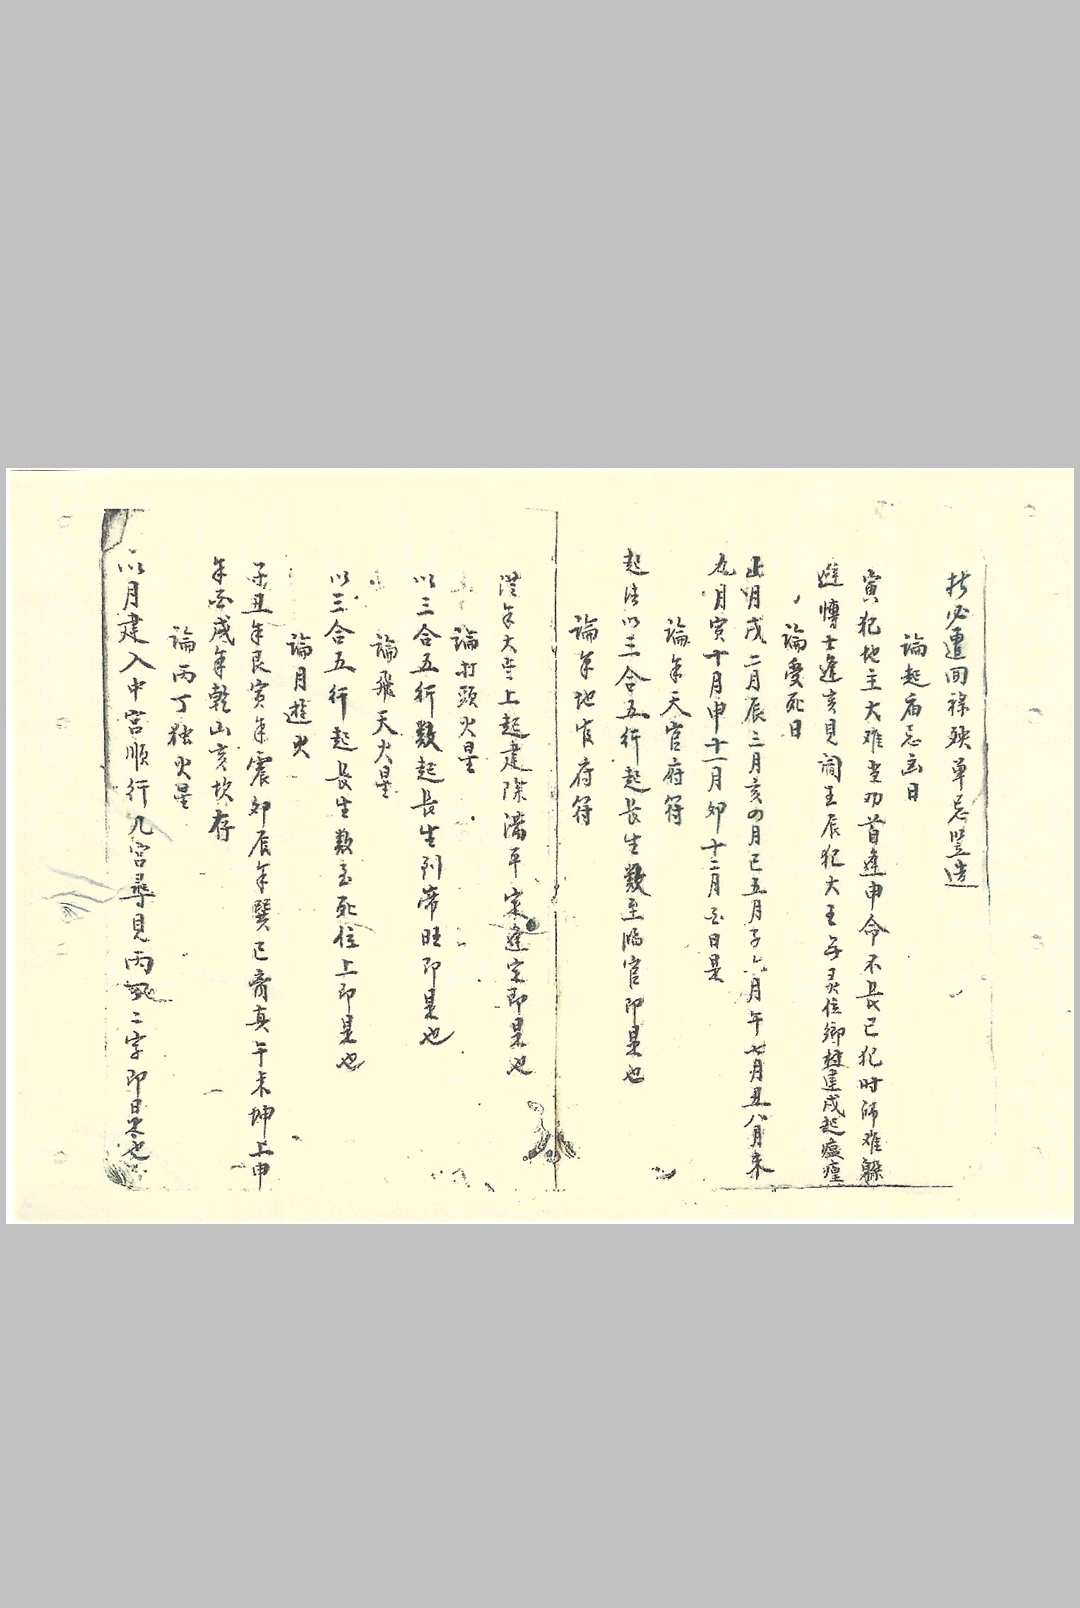 必遭回祿殃單忌豎造
論起病忌凶日
寅犯地主大难当卯首逢申命不長巳犯时师难躲
避愽士逢亥見阎王辰犯大王子灵位鄉戌起瘟瘽
論受死日
正月戌二月辰三月亥四月巳五月子六月午七月丑八月未
九月寅十月申十一月卯十二月酉日是
論年天官府符
起法以三合五行起長生數至臨官即是也
論年地官府符
從年大上起建除滿平定逢定即是也
論打頭火星
以三合五行數起長生到帝旺即是也
論飛天火星
以三合五行起長生數至死位上即是也
論月遊火
子丑年艮寅年震卯辰年巽巳真午未坤上申
年酉戌年乾山亥坎存
論丙丁独火星
以月建入中宮順行九宮尋見丙二字即是也